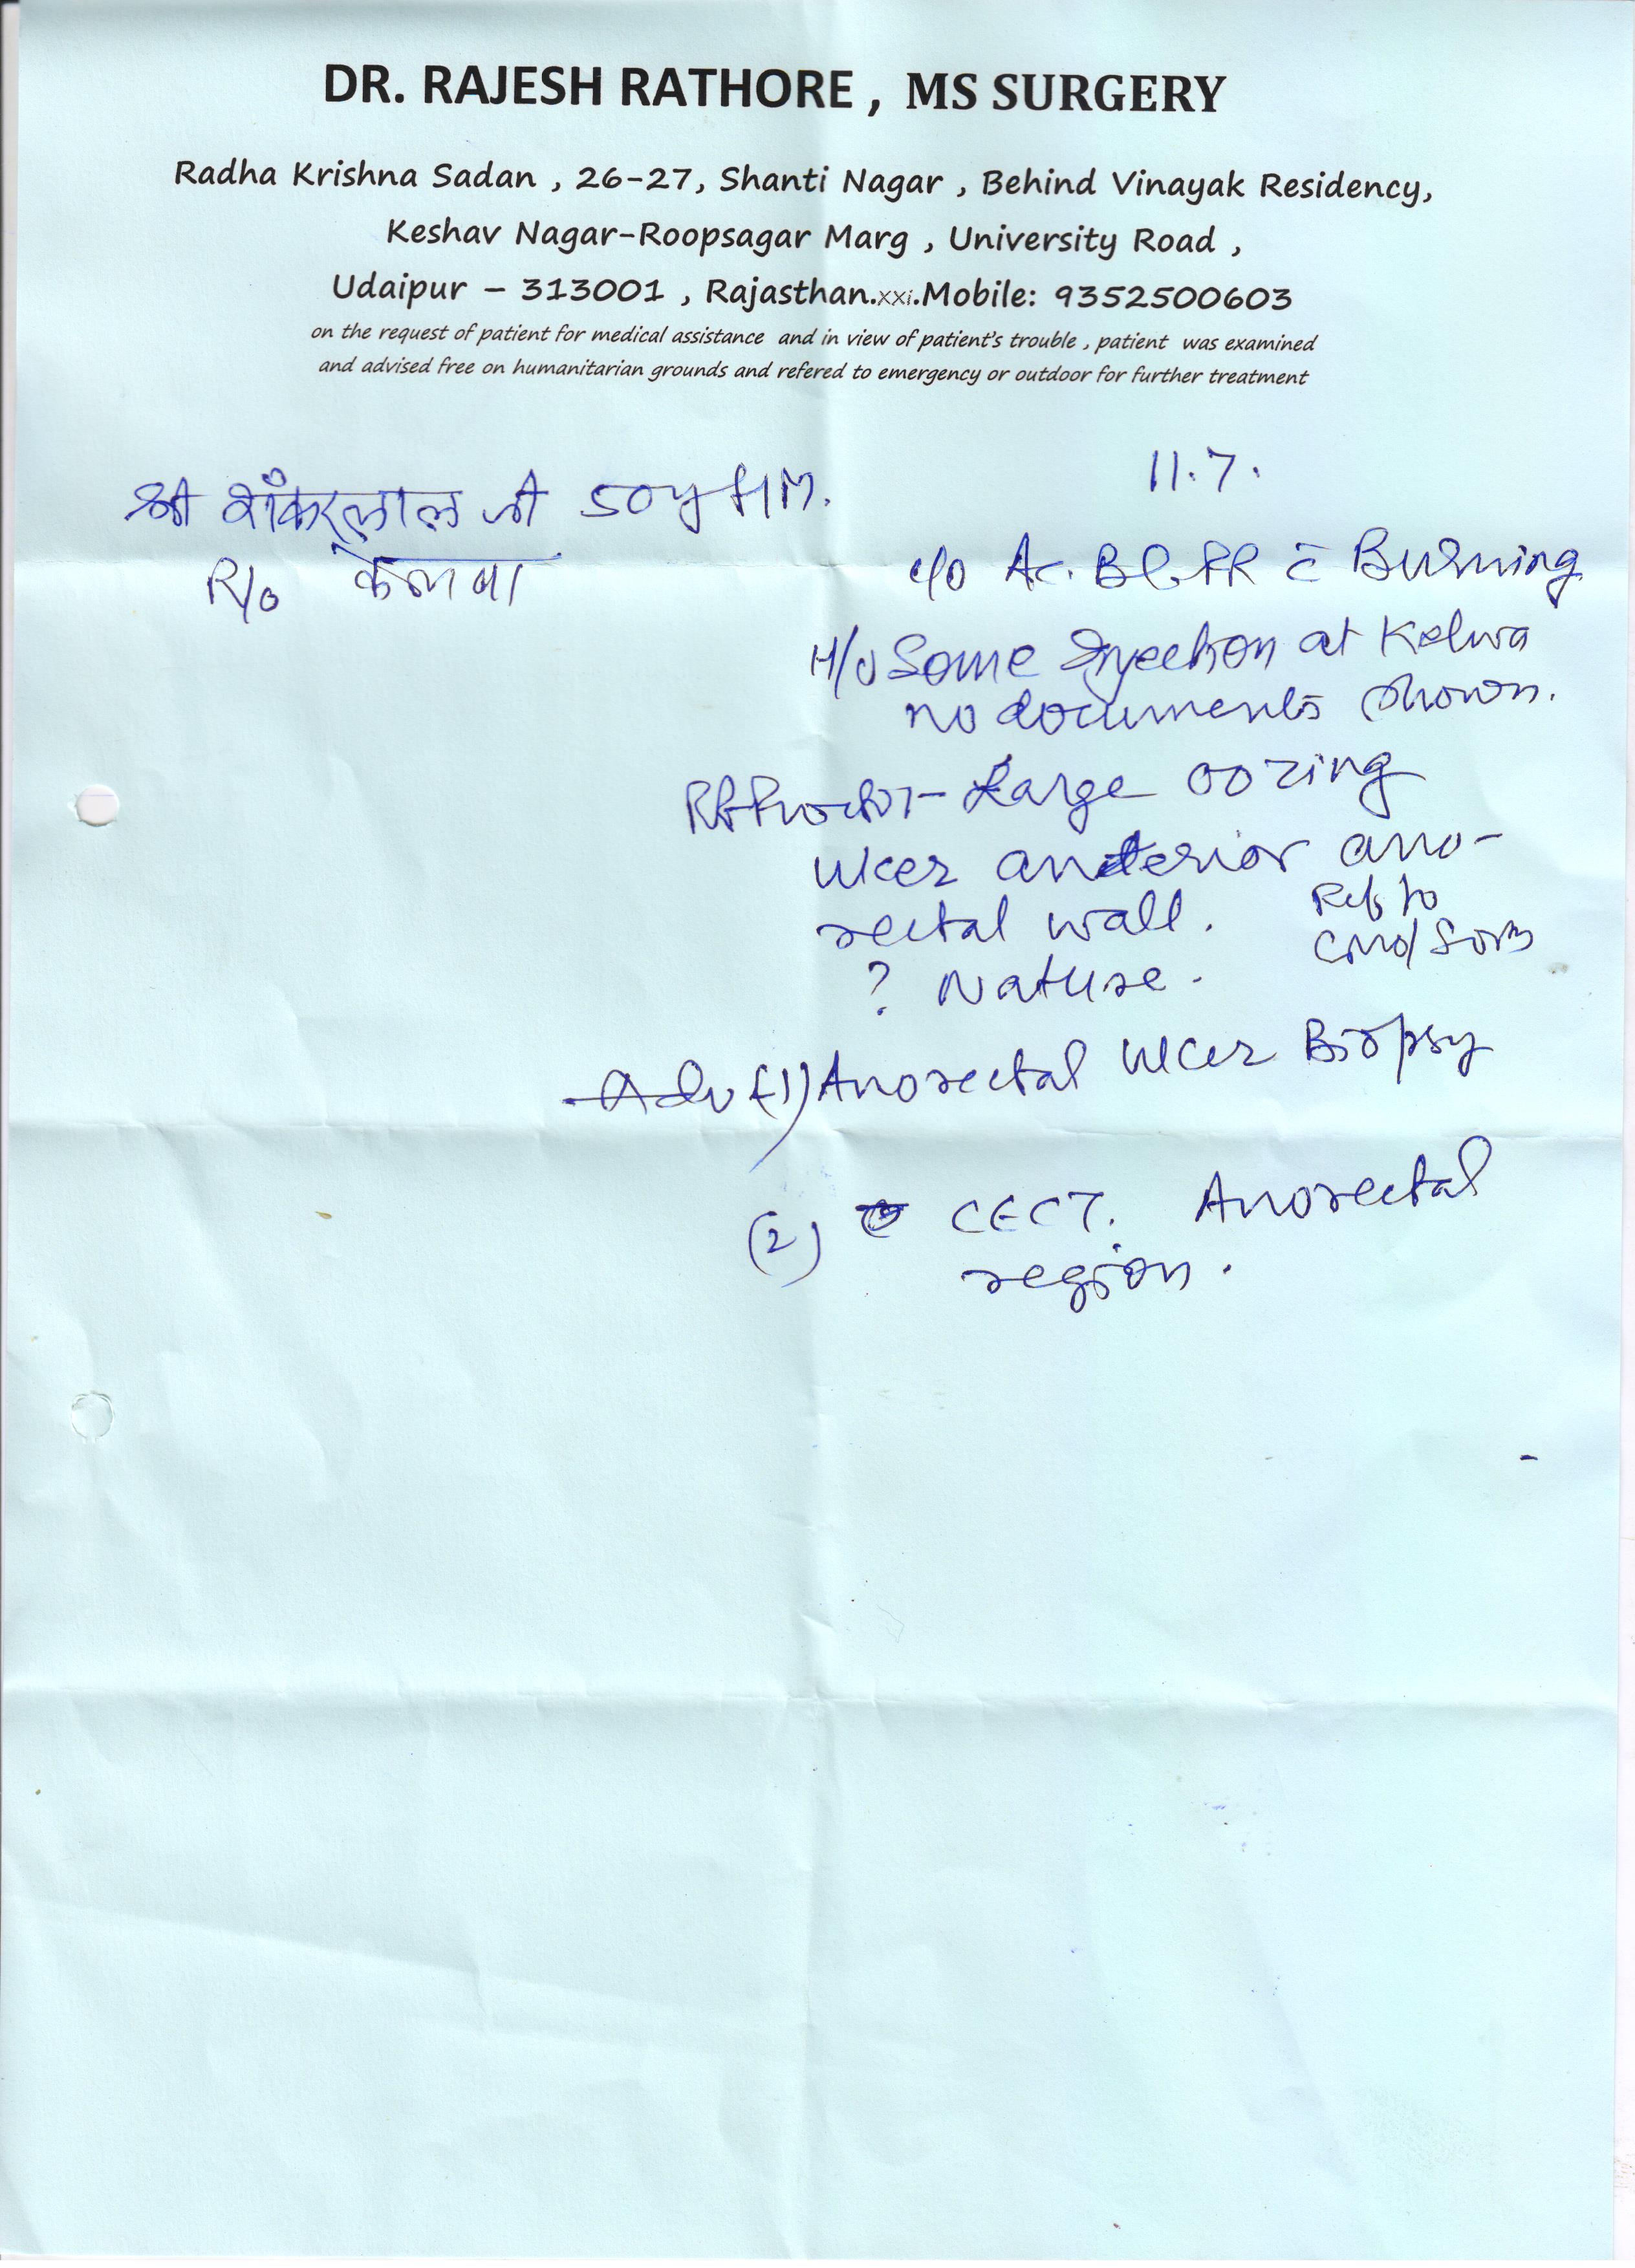 DR. RAJESH RATHORE , MS SURGERY
Radha Krishna Sadan , 26-27, Shanti Nagar , Behind Vinayak Residency,
Keshav Nagar-Roopsagar Marg , University Road ,
Udaipur – 313001 , Rajasthan.xxi.Mobile: 9352500603
on the request of patient for medical assistance and in view of patient's trouble , patient was examined
and advised free on humanitarian grounds and refered to emergency or outdoor for further treatment
11.7.
श्री शंकरलाल जी 50y HM.
R/o केलवा
c/o Ac. Bl. PR c̄ Burning
H/o Some Injection at Kelwa
no documents shown.
Large oozing
ulcer anterior ano-
rectal wall.
Ref to
? Nature.
Adv (1) Anorectal ulcer Biopsy
(2) CECT. Anorectal
region.